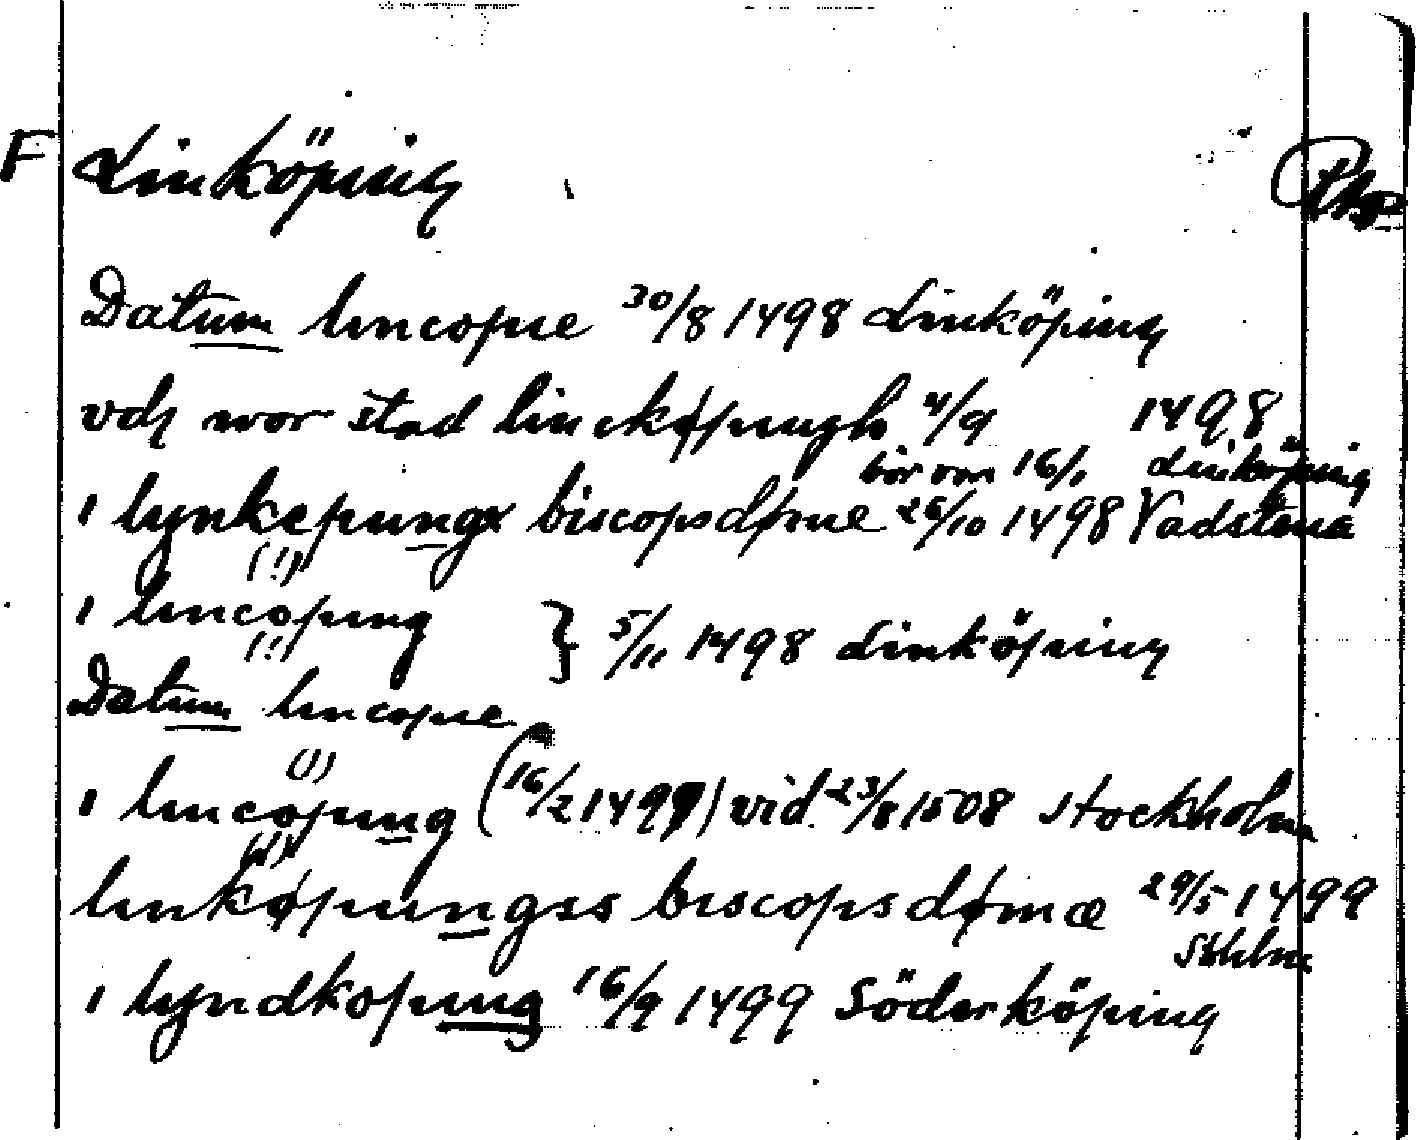 F Linköping
Datum lincopie 30/8 1498 Linköping
vdj wor stad linckøpungh 4/9 1498
bör vara 16/1 Linköping
i lynkepungx biscopsdøme 26/10 1498 Vadstena
(!)
i lincopung } 5/11 1498 Linköping
(!)
Datum lincopie
(!)
i lincopung (16/2 1499) vid. 23/8 1508 Stockholm
(!)
linkøpungss biscopsdømæ 29/5 1499
Sthlm
i lyndkopung 16/9 1499 Söderköping